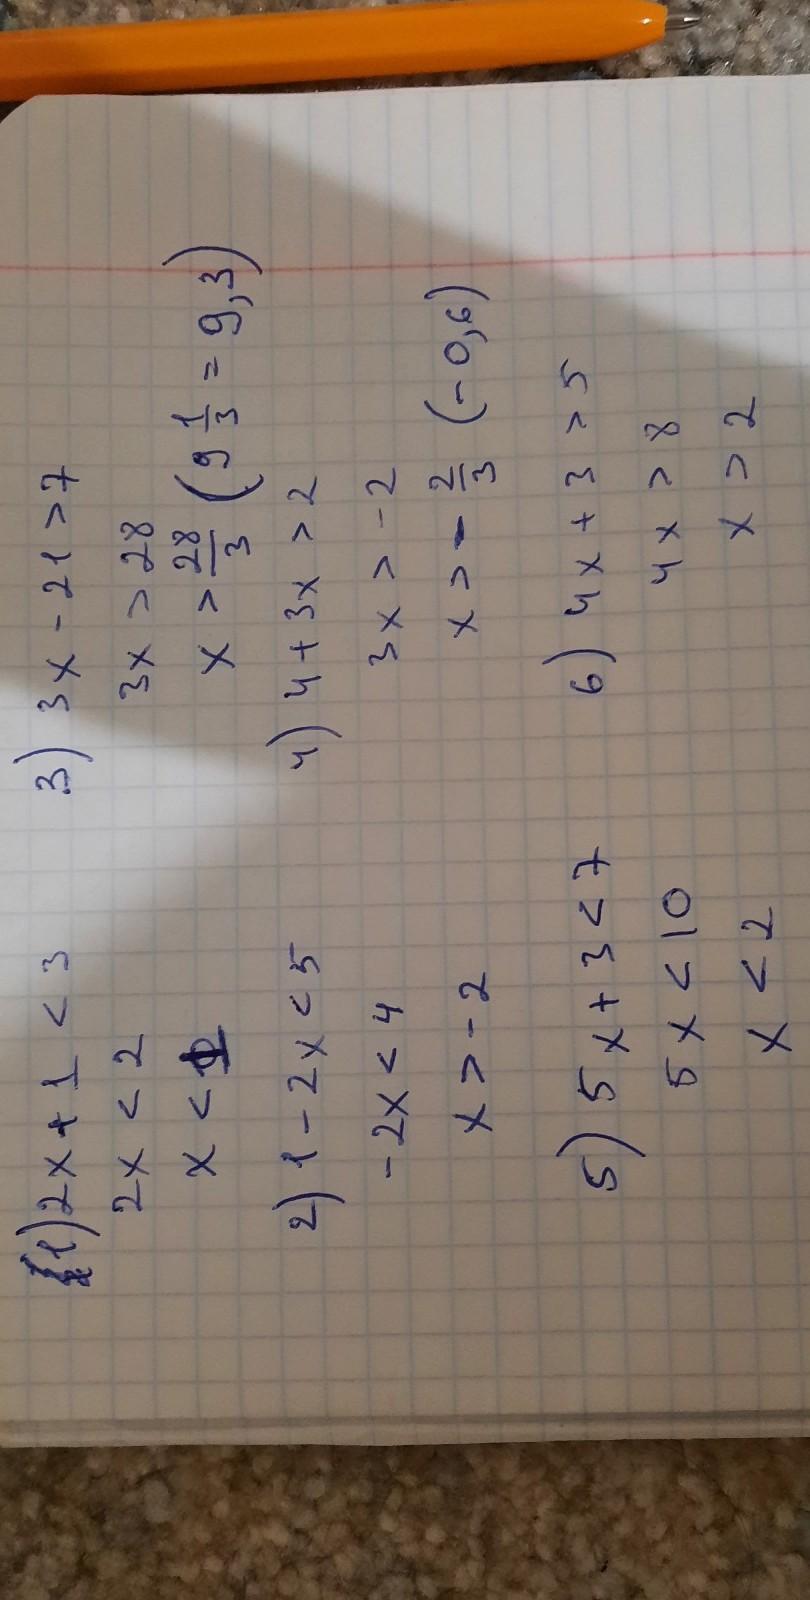 1) 2x + 1 < 3
2x < 2
x < 1
2) 1 - 2x < 5
-2x < 4
x > -2
3) 3x - 21 > 7
3x > 28
x > 28/3 (9 1/3 = 9,3)
4) 4 + 3x > 2
3x > -2
x > - 2/3 (-0,6)
5) 5x + 3 < 7
5x < 10
x < 2
6) 4x + 3 > 5
4x > 8
x > 2